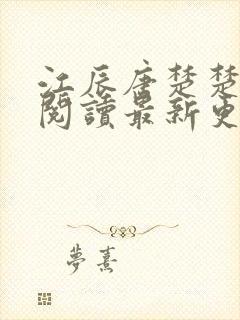 江辰唐楚楚
閱讀最新更
夢熹